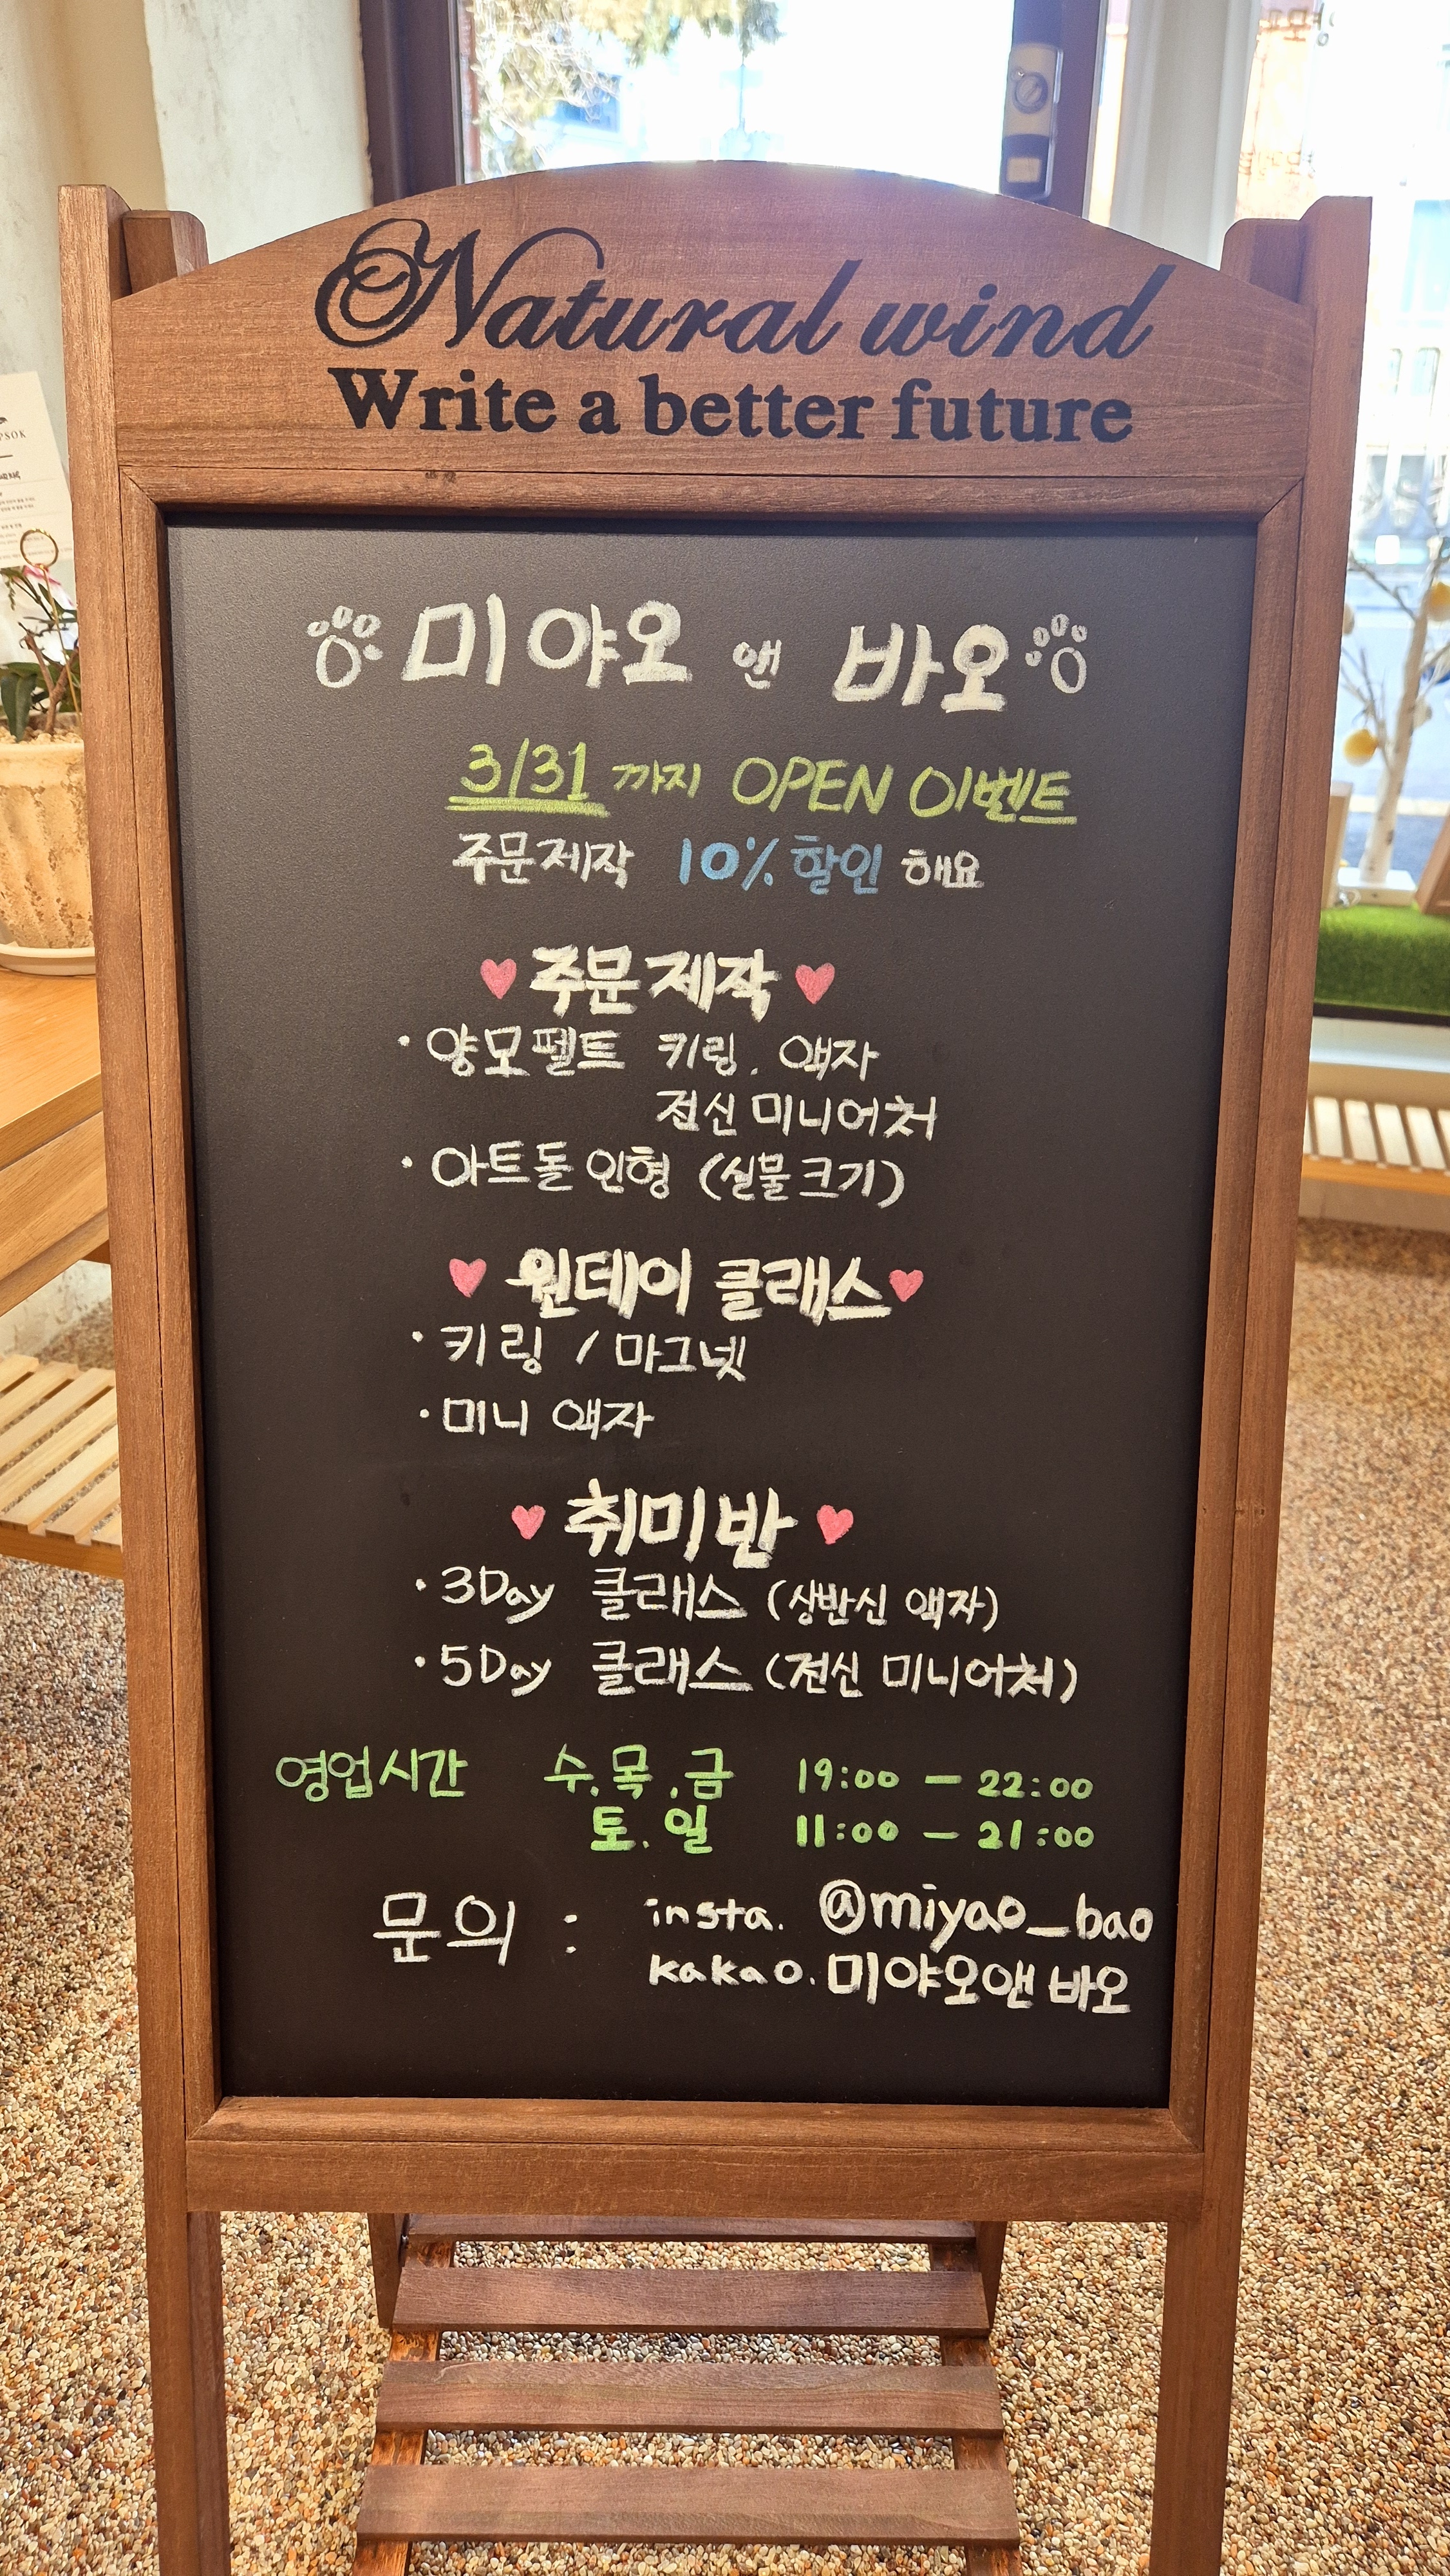 Natural wind
Write a better future
미야오 앤 바오
3/31 까지 OPEN 이벤트
주문제작 10% 할인 해요
주문제작
· 양모펠트 키링. 액자
전신 미니어처
· 아트돌 인형 (실물크기)
원데이 클래스
· 키링 / 마그넷
· 미니 액자
취미반
· 3Day 클래스 (상반신 액자)
· 5Day 클래스 (전신 미니어처)
영업시간 수.목.금 19:00 - 22:00
토.일 11:00 - 21:00
문의 : insta. @miyao_bao
kakao. 미야오앤바오